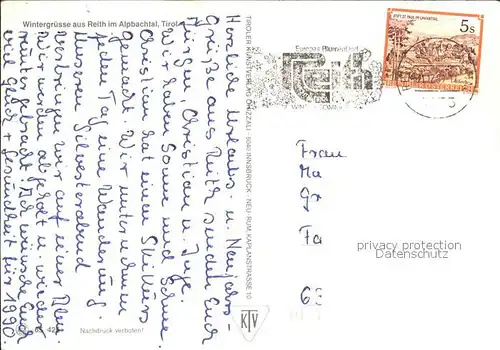 Wintergrüsse aus Reith im Alpbachtal, Tirol
Herzliche Urlaubs- u. Neujahrs-
Grüße aus Reith senden Euch
Jürgen, Christian u. Inge.
Wir haben Sonne und Schnee
Christian hat einen Skikurs
gemacht. Wir unternehmen
jeden Tag eine Wanderung.
Unseren Silvesterabend
verbringen wir auf einer Alm.
Wir werden abgeholt u. wieder
runter gebracht! Ich wünsche Euch
viel Glück + Gesundheit für 1990
Nachdruck verboten!
TIROLER KUNSTVERLAG CHIZZALI · 6040 INNSBRUCK - NEU-RUM, KAPLANSTRASSE 10
KTV
Europas Blumendorf
Reith
5s
Frau
Ma
Gr
Fa
63
privacy protection
Datenschutz